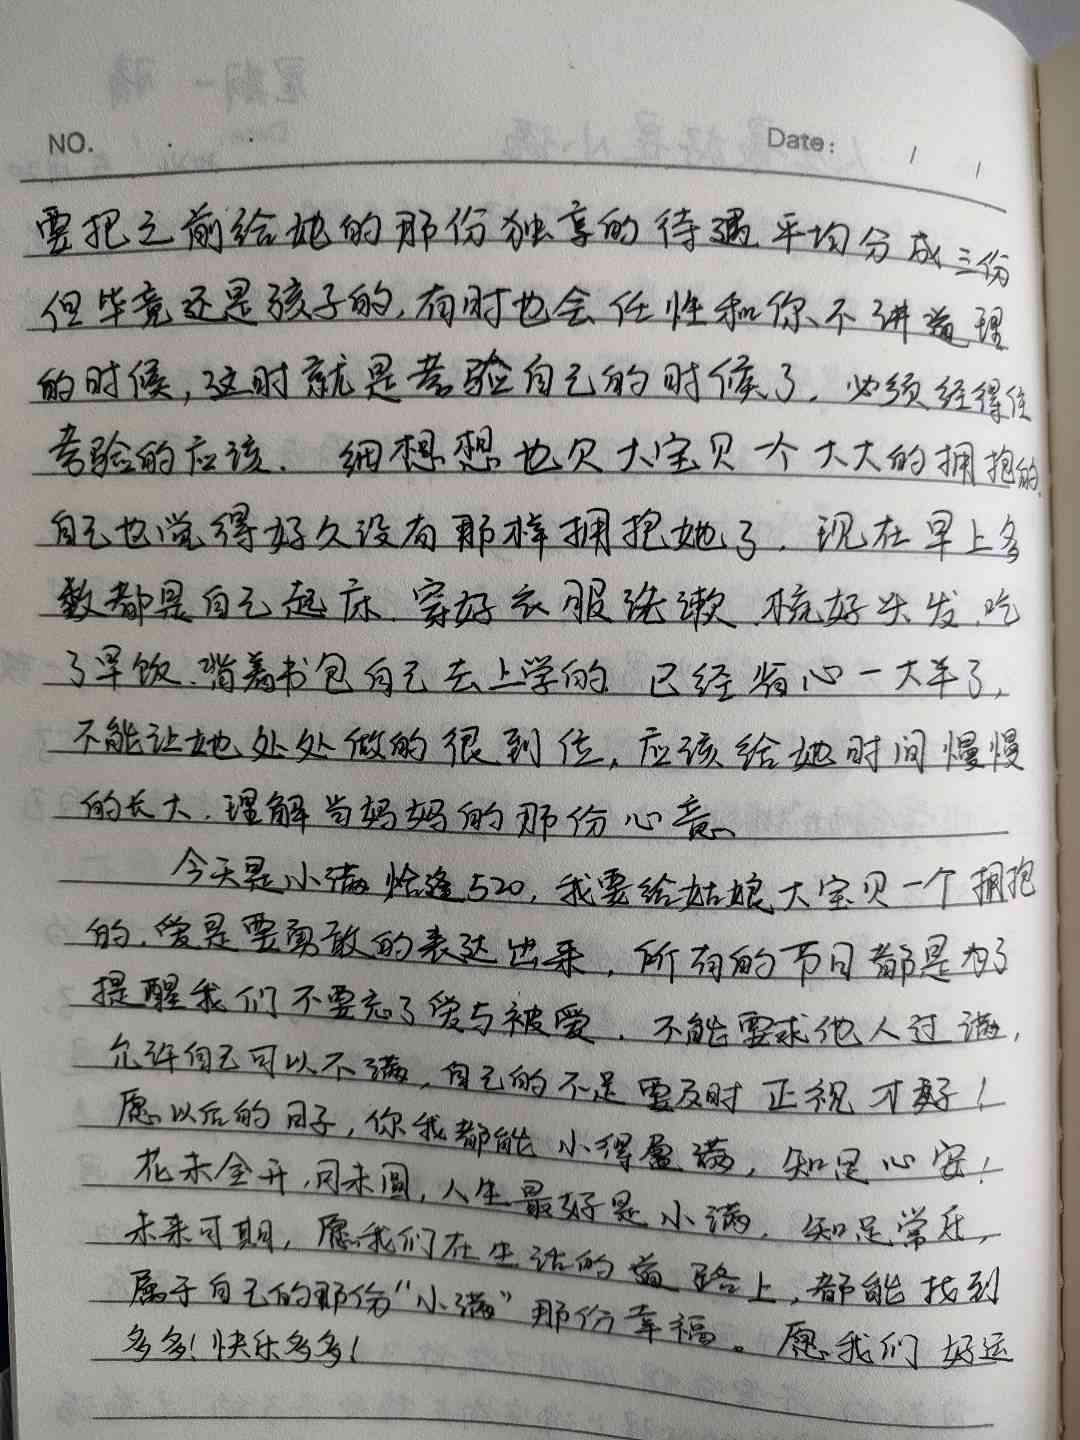 NO.
Date:
要把之前给她的那份独享的待遇平均分成三份
但毕竟还是孩子的,有时也会任性和你不讲道理
的时候,这时就是考验自己的时候了.必须经得住
考验的应该. 细想想也欠大宝贝一个大大的拥抱的.
自己也觉得好久没有那样拥抱她了.现在早上多
数都是自己起床.穿好衣服洗漱.梳好头发.吃
了早饮.背着书包自己去上学的 已经省心一大半了,
不能让她处处做的很到位,应该给她时间慢慢
的长大.理解当妈妈的那份心意
今天是小满恰逢520,我要给姑娘大宝贝一个拥抱
的.爱是要勇敢的表达出来,所有的节日都是为了
提醒我们不要忘了爱与被爱.不能要求他人过满,
允许自己可以不满,自己的不足要及时正视才好!
愿以后的日子,你我都能小得盈满,知足心安!
花未全开,月未圆,人生最好是小满.知足常乐,
未来可期,愿我们在生活的道路上,都能找到
属于自己的那份“小满”那份幸福。愿我们好运
多多!快乐多多!